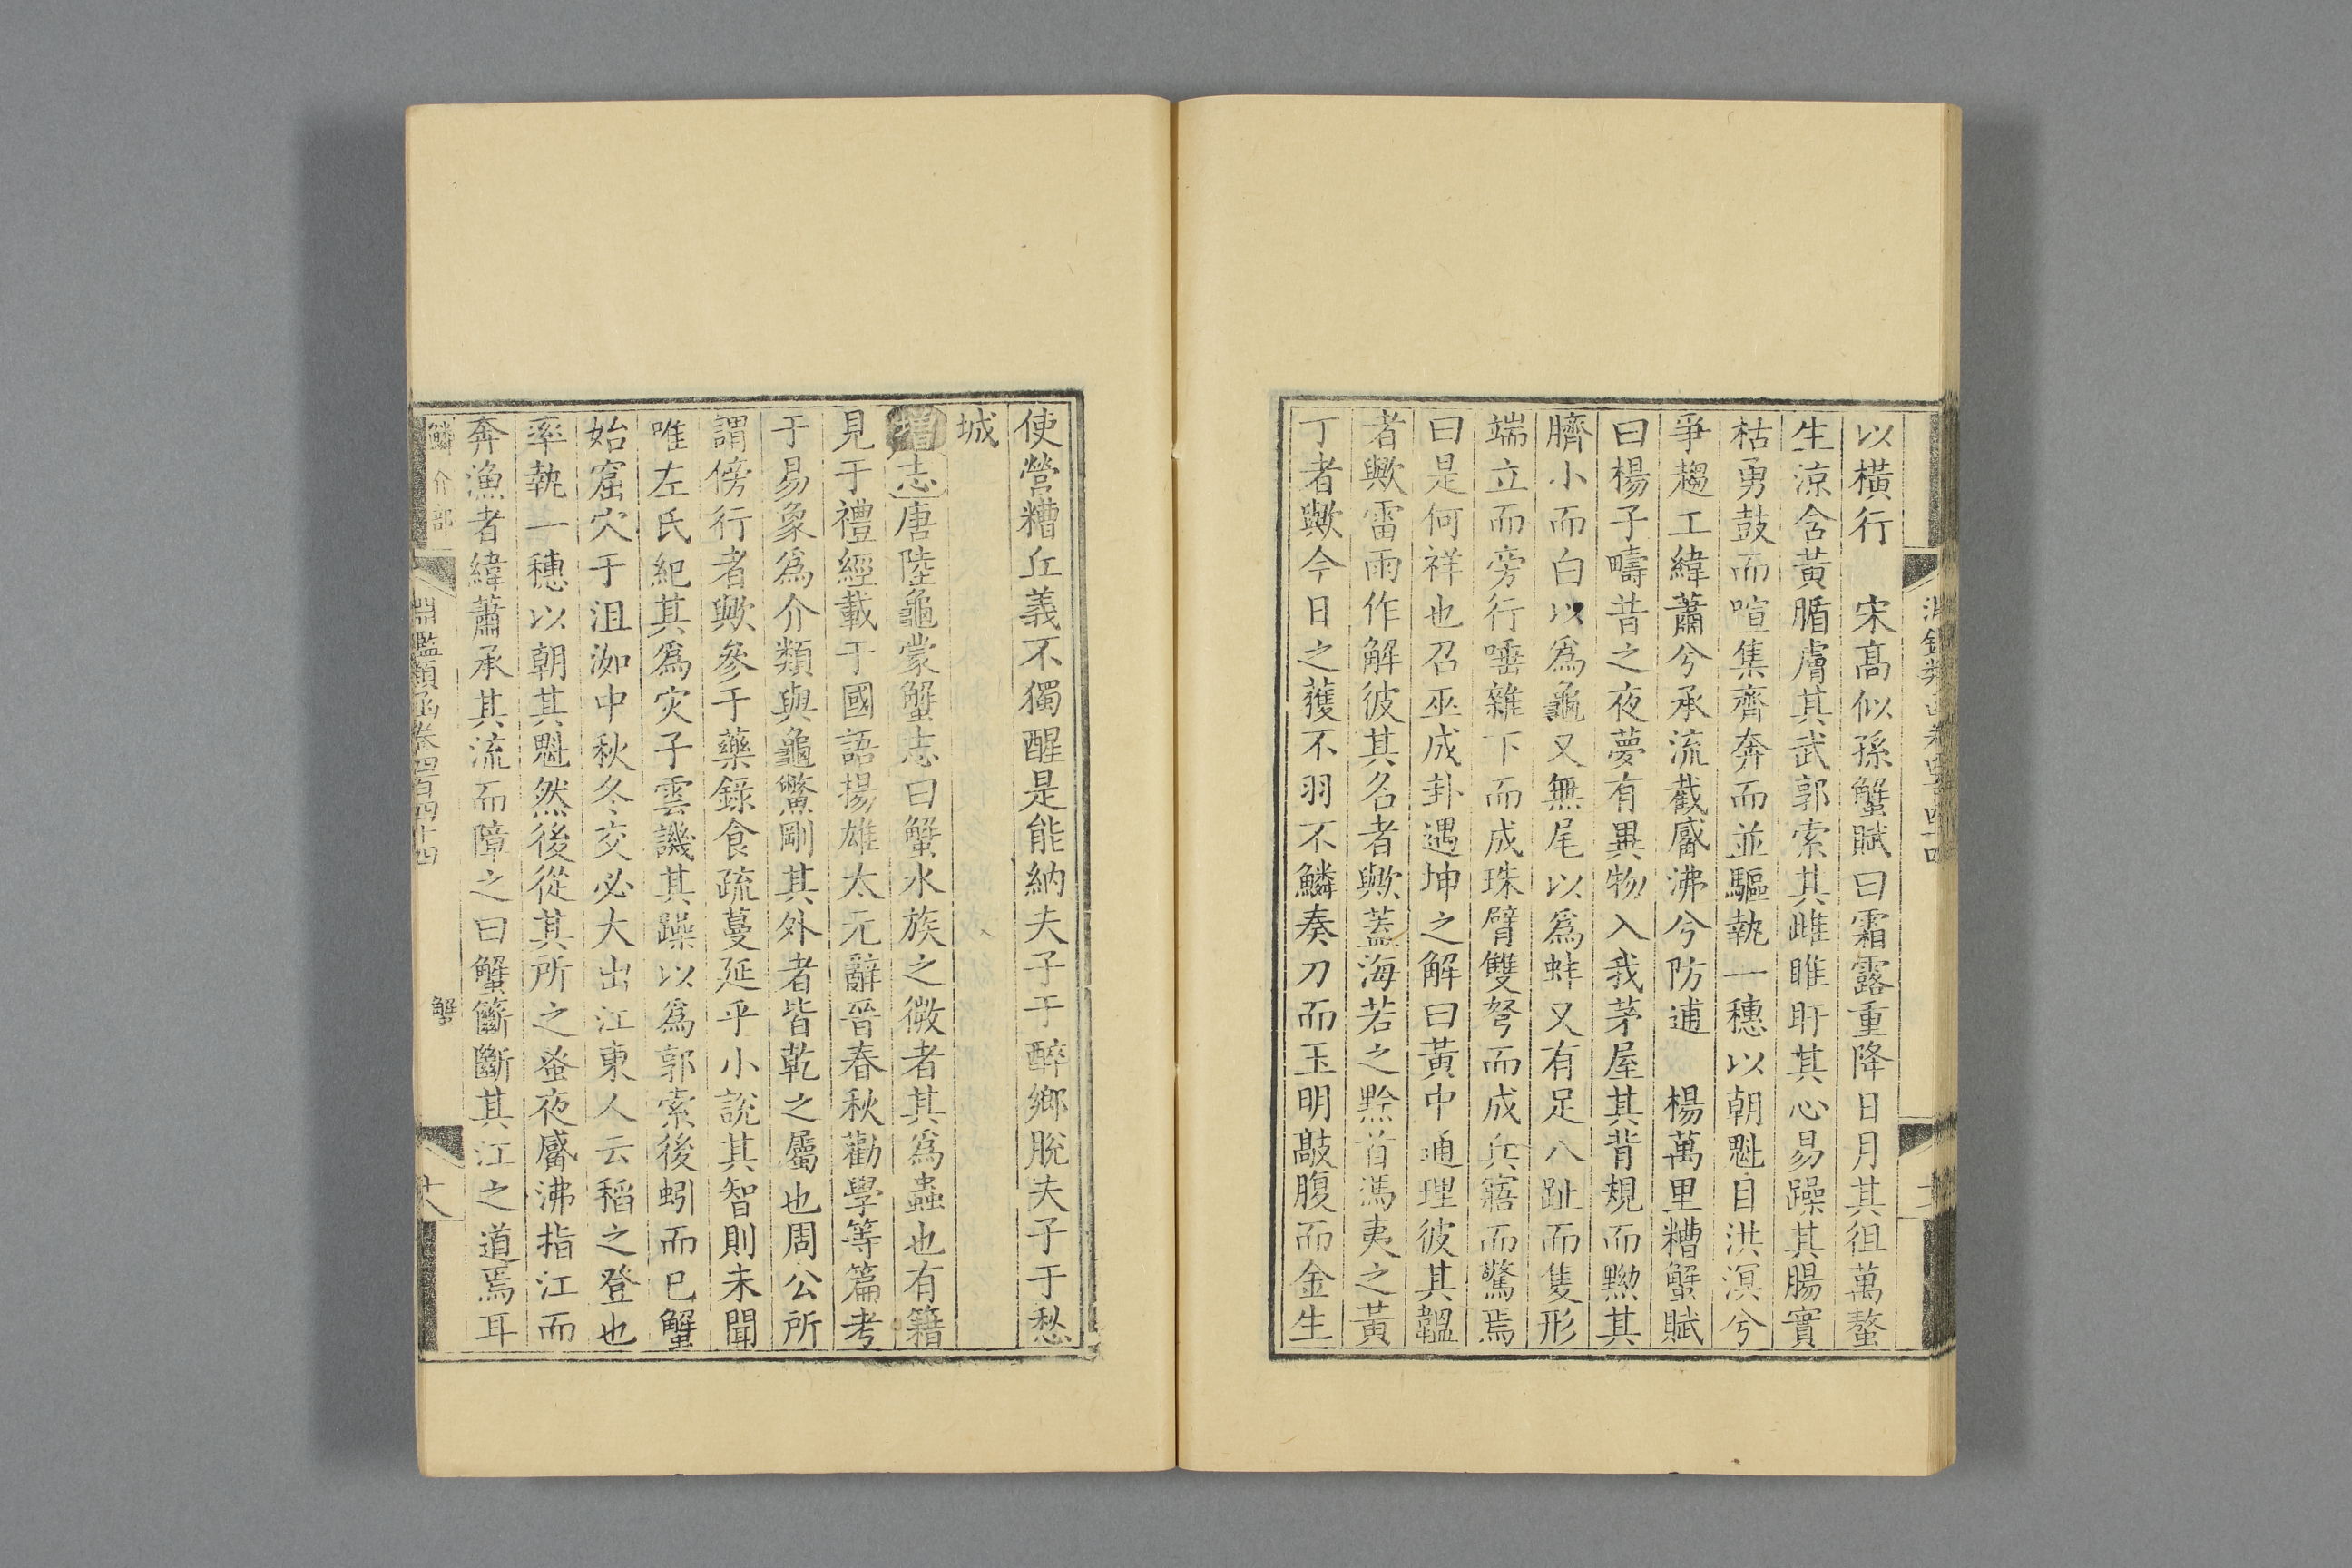 以橫行　宋高似孫蟹賦曰霜露重降日月其徂萬螯
生涼含黃腯膚其武郭索其雌睢盱其心易躁其腸實
枯勇鼓而喧集齊奔而並驅執一穗以朝魁目洪溟兮
爭趨工緯蕭兮承流截觱沸兮防逋　楊萬里糟蟹賦
曰楊子疇昔之夜夢有異物入我茅屋其背規而黝其
臍小而白以爲龜又無尾以爲蚌又有足八趾而隻形
端立而旁行唾雜下而成珠臂雙弩而成兵寤而驚焉
曰是何祥也召巫咸卦遇坤之解曰黃中通理彼其韞
者歟雷雨作解彼其名者歟蓋海若之黔首馮夷之黃
丁者歟今日之獲不羽不鱗奏刀而玉明敲腹而金生
使營糟丘義不獨醒是能納夫子于醉鄉脫夫子于愁
城
增志唐陸龜蒙蟹志曰蟹水族之微者其爲蟲也有籍
見于禮經載于國語揚雄太元辭晉春秋勸學等篇考
于易象爲介類與龜鱉剛其外者皆乾之屬也周公所
謂傍行者歟參于藥錄食疏蔓延乎小說其智則未聞
唯左氏紀其爲災子雲譏其躁以爲郭索後蚓而已蟹
始窟穴于沮洳中秋冬交必大出江東人云稻之登也
率執一穗以朝其魁然後從其所之蚤夜觱沸指江而
奔漁者緯蕭承其流而障之曰蟹籪斷其江之道焉耳
鱗介部
淵鑑類函卷四百四十四
蟹
十八